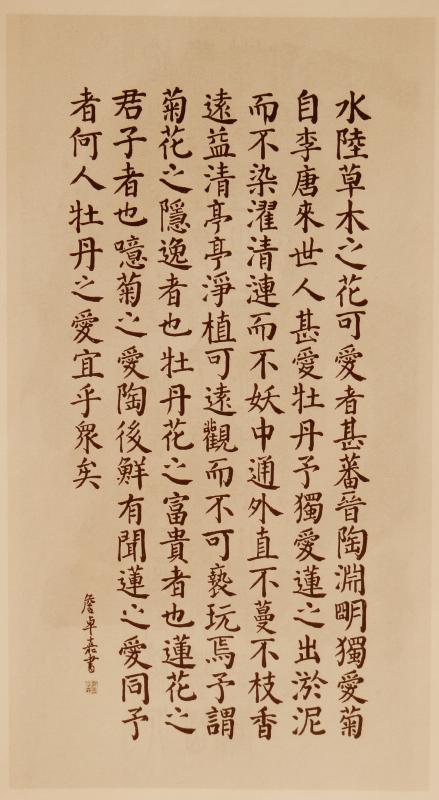 水陸草木之花可愛者甚蕃晉陶淵明獨愛菊
自李唐來世人甚愛牡丹予獨愛蓮之出淤泥
而不染濯清漣而不妖中通外直不蔓不枝香
遠益清亭亭淨植可遠觀而不可褻玩焉予謂
菊花之隱逸者也牡丹花之富貴者也蓮花之
君子者也噫菊之愛陶後鮮有聞蓮之愛同予
者何人牡丹之愛宜乎眾矣
詹卓嘉書